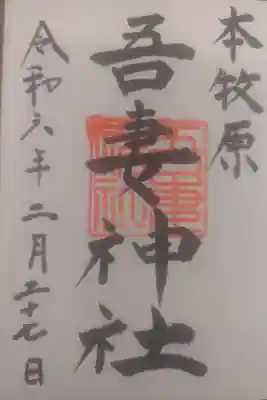 本牧原
吾妻神社
令和六年二月二十七日